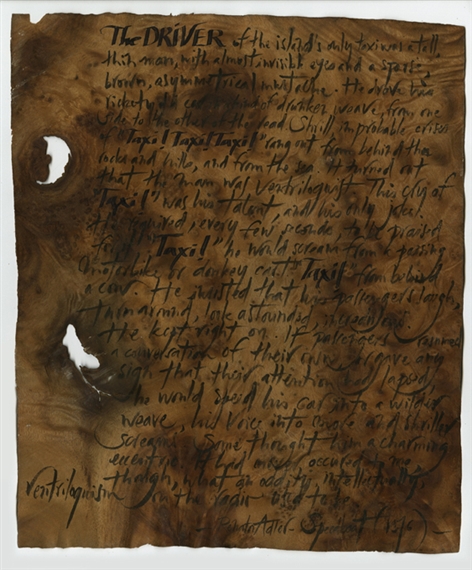 The DRIVER of the island's only taxi was a tall,
thin man, with almost invisible eyes and a sparse
brown, asymmetrical mustache. He drove his
rickety old car, in a kind of drunken weave, from one
side to the other of the road. Shrill, improbable cries
of "Taxi! Taxi! Taxi!" rang out from behind the
rocks and hills, and from the sea. It turned out
that the man was ventriloquist. This cry of
"Taxi!" was his talent, and his only joke.
He required, every few seconds, to be praised
for it. "Taxi!" he would scream from a passing
motorbike or donkey cart. "Taxi!" from behind
a cow. He insisted that his passengers laugh,
turn around, look astounded, 
He kept right on. If passengers resumed
a conversation of their own, or gave any
sign that their attention had lapsed,
he would speed his car into a wilder
weave, his voice into more and shriller
screams. Some thought him a charming
eccentric. It had never occurred to me
though, what an oddity, intellectually,
ventriloquism on the radio used to be.
- Renata Adler - Speedboat (1976) -